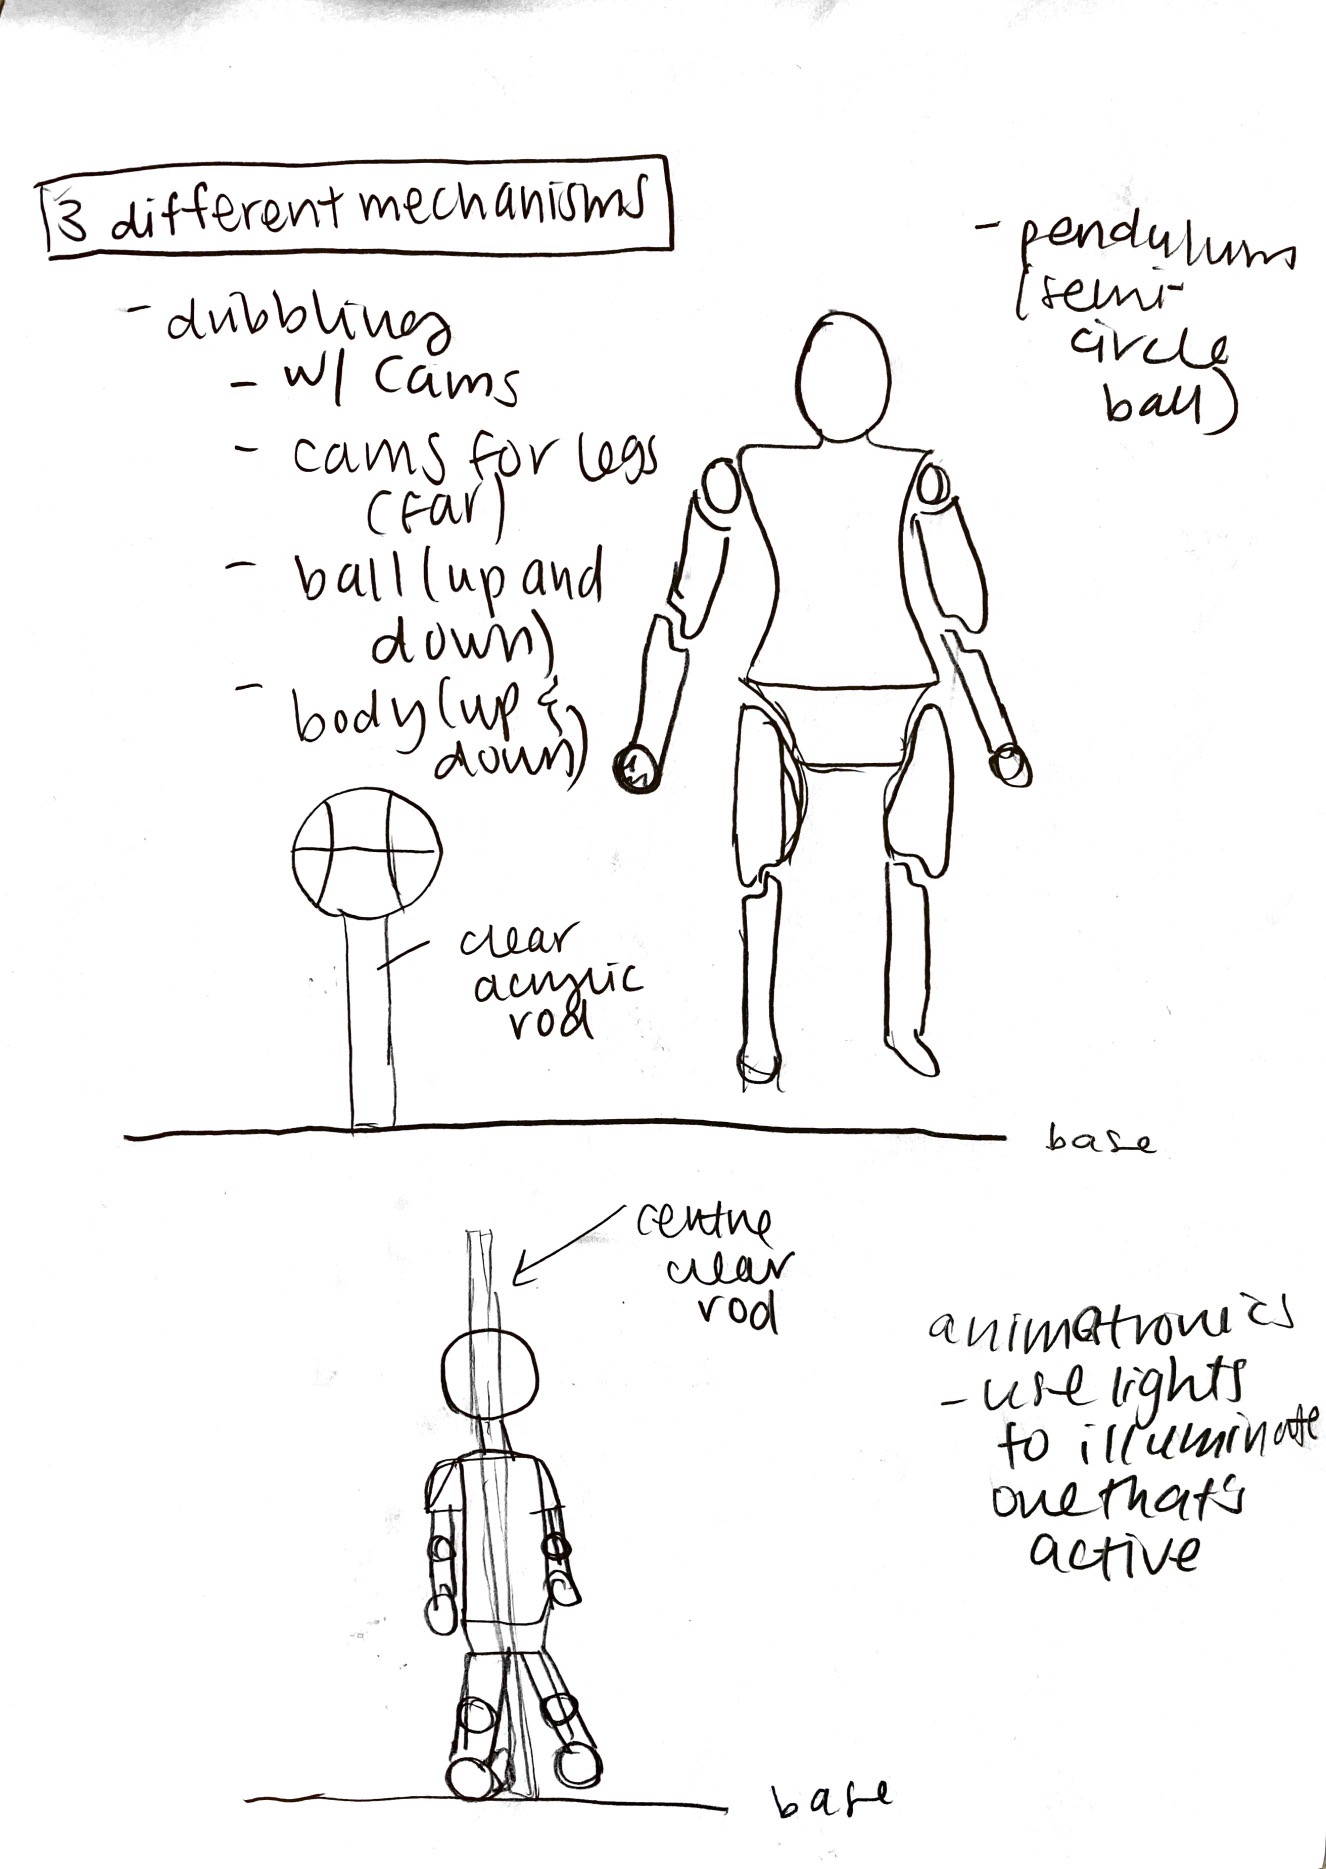 3 different mechanisms
- dubbling
- w/ cams
- cams for legs
(far)
- ball (up and
down)
- body (up &
down)
- pendulum
(semi-
circle
ball)
clear
acrylic
rod
base
centre
clear
rod
animatronics
- use lights
to illuminate
one that's
active
base